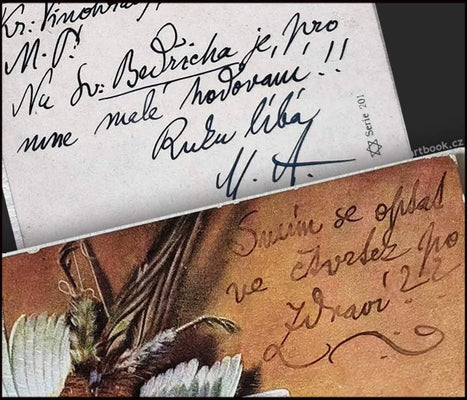 Kr. Vinohrady
M. P!
Na Sv: Bedřicha je, pro
mne malé hodování!!
Ruku líbá
M. A.
Serie 201
artbook.cz
Smím se optat
ve čtvrtek po
zdraví??